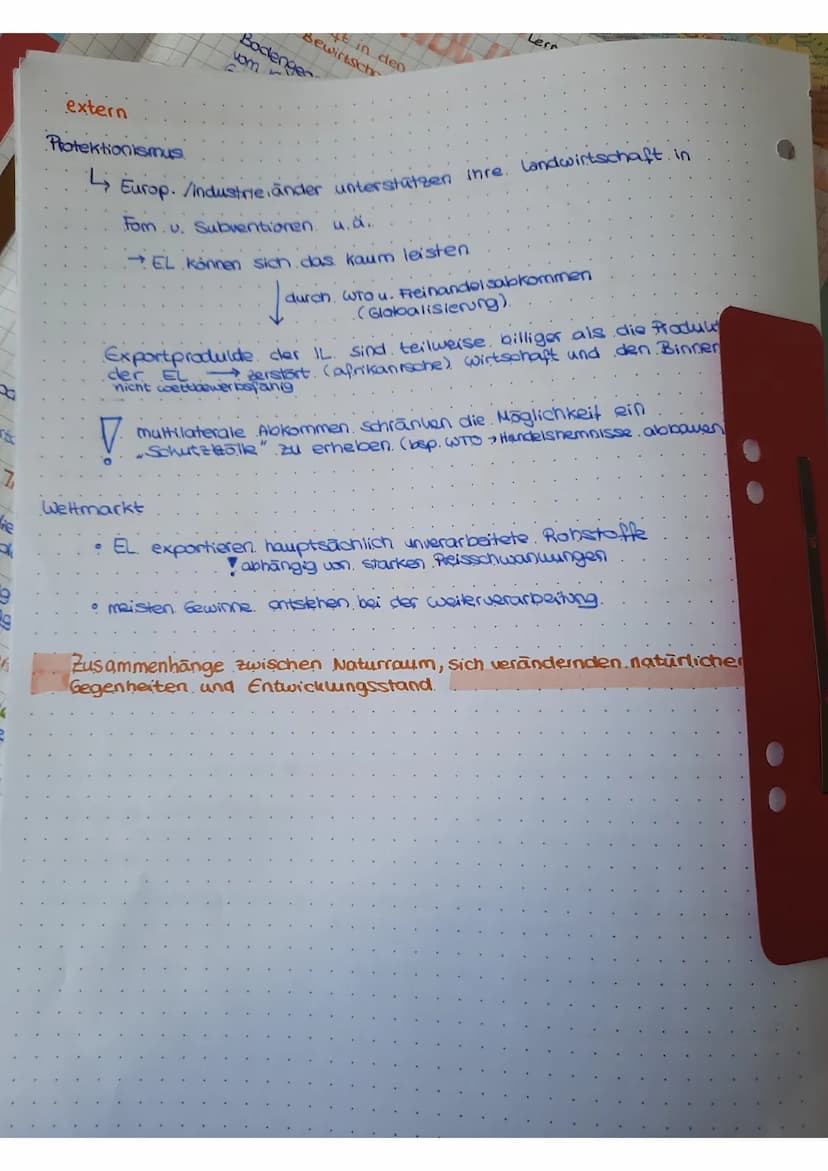 Lern
ft in den
Bewirtsch
Bodenge
vom
extern
Protektionismus
↳ Europ. /Industrieländer unterstützen ihre Landwirtschaft in
Form v. Subventionen u.ä.
→ EL können sich das kaum leisten
durch WTO u. Freihandelsabkommen
(Globalisierung)
Exportprodukte der IL sind teilweise billiger als die Produkt
der EL → zerstört (afrikanische) Wirtschaft und den Binnen
nicht wettbewerbsfähig
! multilaterale Abkommen schränken die Möglichkeit ein
"Schutzzölle" zu erheben (bsp. WTO → Handelshemnisse abbauen
Weltmarkt
• EL exportieren hauptsächlich unverarbeitete Rohstoffe
! abhängig von starken Preisschwankungen
• meisten Gewinne entstehen bei der Weiterverarbeitung
Zusammenhänge zwischen Naturraum, sich verändernden natürlichen
Gegenheiten und Entwicklungsstand